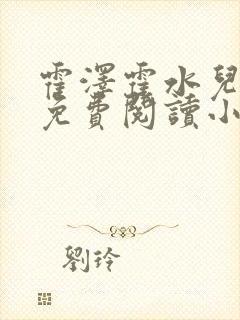 霍澤霍水兒
免費閱讀小
劉玲